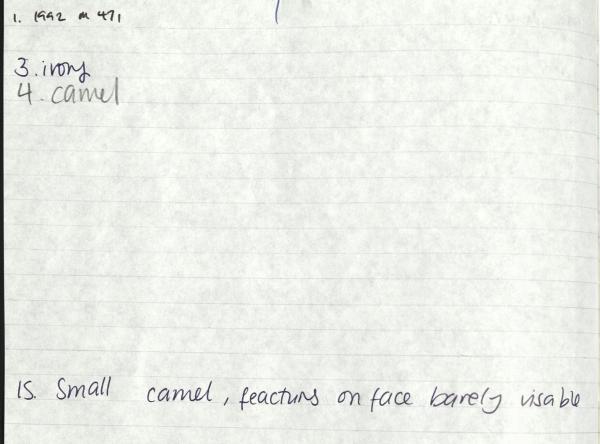 1. 1992 M 471
3. ivory
4. camel
15. Small camel, feacturs on face barely visable